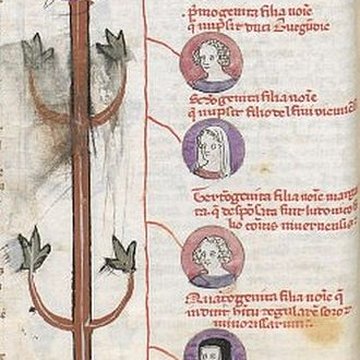 Primogenita filia noīe
q̄ nupsit duci Burgūdie
Scd̄ogenita filia noīe
q̄ nupsit filio delfini viēnēs
Tertogenita filia noīe marga
ta. q̄ despōsata fuit ludovico
lio comitis nivernensis
Quartogenita filia noīe q̄
induit hītū regularē soror
minorissarum